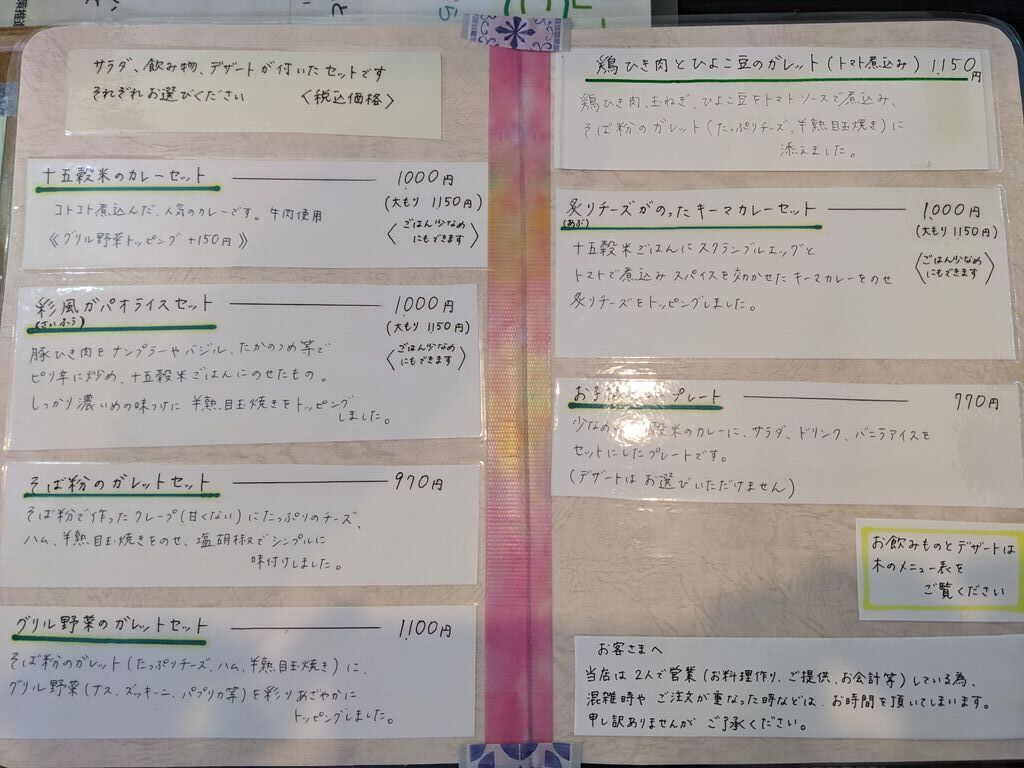 サラダ、飲み物、デザートが付いたセットです
それぞれお選びください 〈税込価格〉
十五穀米のカレーセット 1000円
コトコト煮込んだ、人気のカレーです。牛肉使用
(大もり 1150円)
《グリル野菜トッピング +150円》
〈ごはん少なめにもできます〉
彩風ガパオライスセット 1000円
(さいふう)
(大もり 1150円)
豚ひき肉をナンプラーやバジル、たかのつめ等で
〈ごはん少なめにもできます〉
ピリ辛に炒め、十五穀米ごはんにのせたもの。
しっかり濃いめの味つけに 半熟目玉焼きをトッピング
しました。
そば粉のガレットセット 970円
そば粉で作ったクレープ(甘くない)にたっぷりのチーズ、
ハム、半熟目玉焼きをのせ、塩胡椒でシンプルに
味付けしました。
グリル野菜のガレットセット 1,100円
そば粉のガレット(たっぷりチーズ、ハム、半熟目玉焼き)に、
グリル野菜(ナス、ズッキーニ、パプリカ等)を彩りあざやかに
トッピングしました。
鶏ひき肉とひよこ豆のガレット(トマト煮込み) 1,150円
鶏ひき肉、玉ねぎ、ひよこ豆をトマトソースで煮込み、
そば粉のガレット(たっぷりチーズ、半熟目玉焼き)に
添えました。
炙りチーズがのったキーマカレーセット 1,000円
(あぶ)
(大もり 1150円)
十五穀米ごはんにスクランブルエッグと
〈ごはん少なめにもできます〉
トマトで煮込みスパイスを効かせたキーマカレーをのせ
炙りチーズをトッピングしました。
お子 プレート 770円
少なめの 穀米のカレーに、サラダ、ドリンク、バニラアイスを
セットにしたプレートです。
(デザートはお選びいただけません)
お飲みものとデザートは
木のメニュー表を
ご覧ください
お客さまへ
当店は2人で営業(お料理作り、ご提供、お会計等)している為、
混雑時や ご注文が重なった時などは、お時間を頂いてしまいます。
申し訳ありませんが ご了承ください。